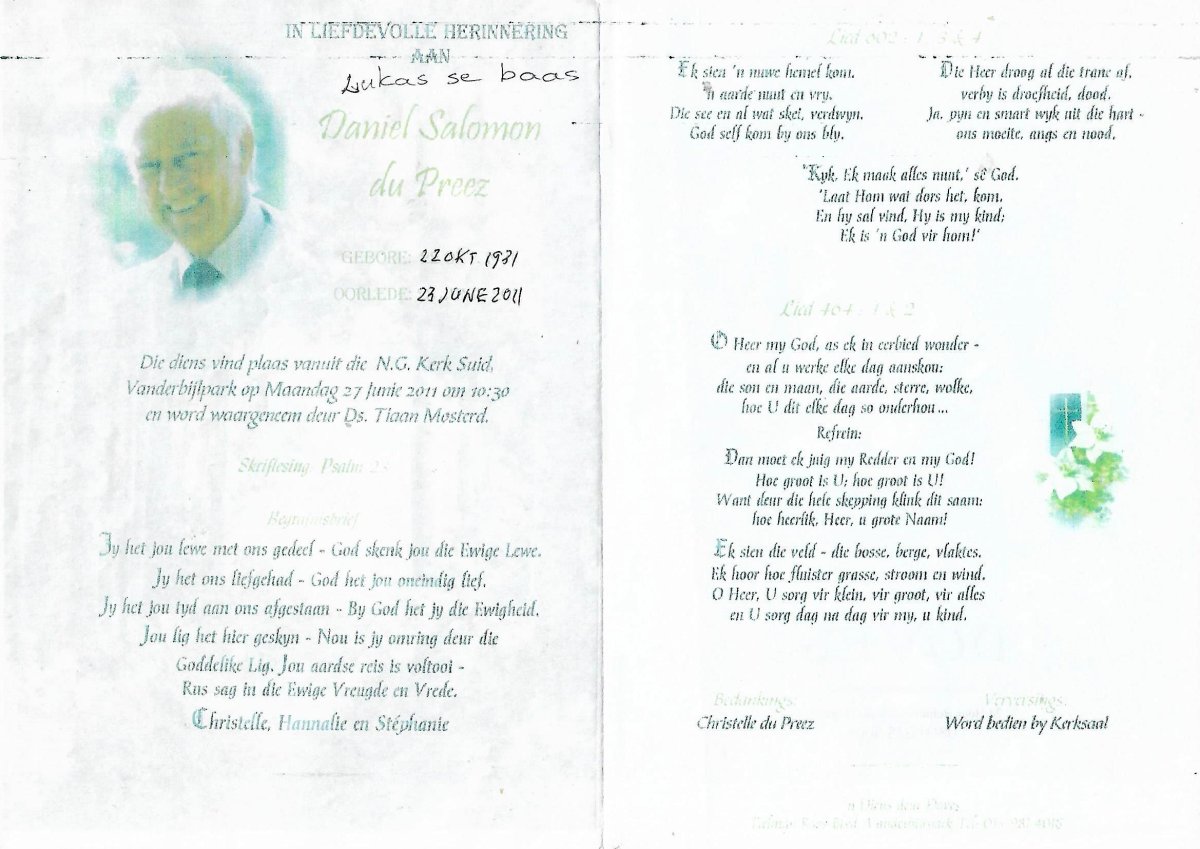 IN LIEFDEVOLLE HERINNERING
AAN
Lukas se baas
Daniel Salomon
du Preez
GEBORE: 22 OKT. 1931
OORLEDE: 23 JUNE 2011
Die diens vind plaas vanuit die N.G. Kerk Suid,
Vanderbijlpark op Maandag 27 Junie 2011 om 10:30
en word waargeneem deur Ds. Tiaan Mosterd.
Skriflesing: Psalm 23
Begrafnisbrief
Jy het jou lewe met ons gedeel - God skenk jou die Ewige Lewe.
Jy het ons liefgehad - God het jou oneindig lief.
Jy het jou tyd aan ons afgestaan - By God het jy die Ewigheid.
Jou lig het hier geskyn - Nou is jy omring deur die
Goddelike Lig. Jou aardse reis is voltooi -
Rus sag in die Ewige Vreugde en Vrede.
Christelle, Hannalie en Stéphanie
Lied 602 : 1, 3 & 4
Ek sien 'n nuwe hemel kom,
'n aarde nuut en vry.
Die see en al wat skei, verdwyn.
God self kom by ons bly.
Die Heer droog al die trane af,
verby is droefheid, dood.
Ja, pyn en smart wyk uit die hart -
ons moeite, angs en nood.
'Kyk, Ek maak alles nuut,' sê God.
'Laat Hom wat dors het, kom.
En hy sal vind, Hy is my kind;
Ek is 'n God vir hom!'
Lied 464 : 1 & 2
O Heer my God, as ek in eerbied wonder -
en al u werke elke dag aanskou:
die son en maan, die aarde, sterre, wolke,
hoe U dit elke dag so onderhou...
Refrein:
Dan moet ek juig my Redder en my God!
Hoe groot is U; hoe groot is U!
Want deur die hele skepping klink dit saam:
hoe heerlik, Heer, u grote Naam!
Ek sien die veld - die bosse, berge, vlaktes.
Ek hoor hoe fluister grasse, stroom en wind.
O Heer, U sorg vir klein, vir groot, vir alles
en U sorg dag na dag vir my, u kind.
Bedankings:
Christelle du Preez
Verversings:
Word bedien by Kerksaal
'n Diens deur
Vanderbijlpark Tel: 981 4018